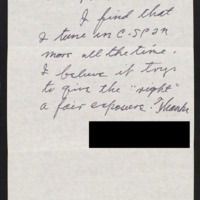 I find that
I tune in C-SPAN
more all the time.
I believe it trys
to give the "right"
a fair exposure. Thanks